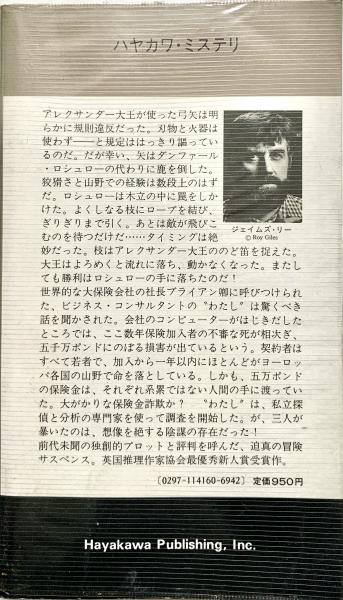 ハヤカワ・ミステリ
アレクサンダー大王が使った弓矢は明
らかに規則違反だった。刃物と火器は
使わず――と規定ははっきり謳ってい
るのだ。だが幸い、矢はダンファール
・ロシュローの代わりに鹿を倒した。
狡猾さと山野での経験は数段上のはず
だ。ロシュローは木立の中に罠をしか
けた。よくしなる枝にロープを結び、
ぎりぎりまで引く。あとは敵が飛びこ
むのを待つだけだ……タイミングは絶
妙だった。枝はアレクサンダー大王ののど笛を捉えた。
大王はよろめくと流れに落ち、動かなくなった。またし
ても勝利はロシュローの手に落ちたのだ！
世界的な大保険会社の社長ブライアン卿に呼びつけられ
た、ビジネス・コンサルタントの〝わたし〟は驚くべき
話を聞かされた。会社のコンピューターがはじきだした
ところでは、ここ数年保険加入者の不審な死が相次ぎ、
五千万ポンドにのぼる損害が出ているという。契約者は
すべて若者で、加入から一年以内にほとんどがヨーロッ
パ各国の山野で命を落としている。しかも、五万ポンド
の保険金は、それぞれ系累ではない人間の手に渡ってい
た。大がかりな保険金詐欺か？　〝わたし〟は、私立探
偵と分析の専門家を使って調査を開始した。が、三人が
暴いたのは、想像を絶する陰謀の存在だった！
前代未聞の独創的プロットと評判を呼んだ、迫真の冒険
サスペンス。英国推理作家協会最優秀新人賞受賞作。
ジェイムズ・リー
© Roy Giles
〔0297-114160-6942〕 定価950円
Hayakawa Publishing, Inc.